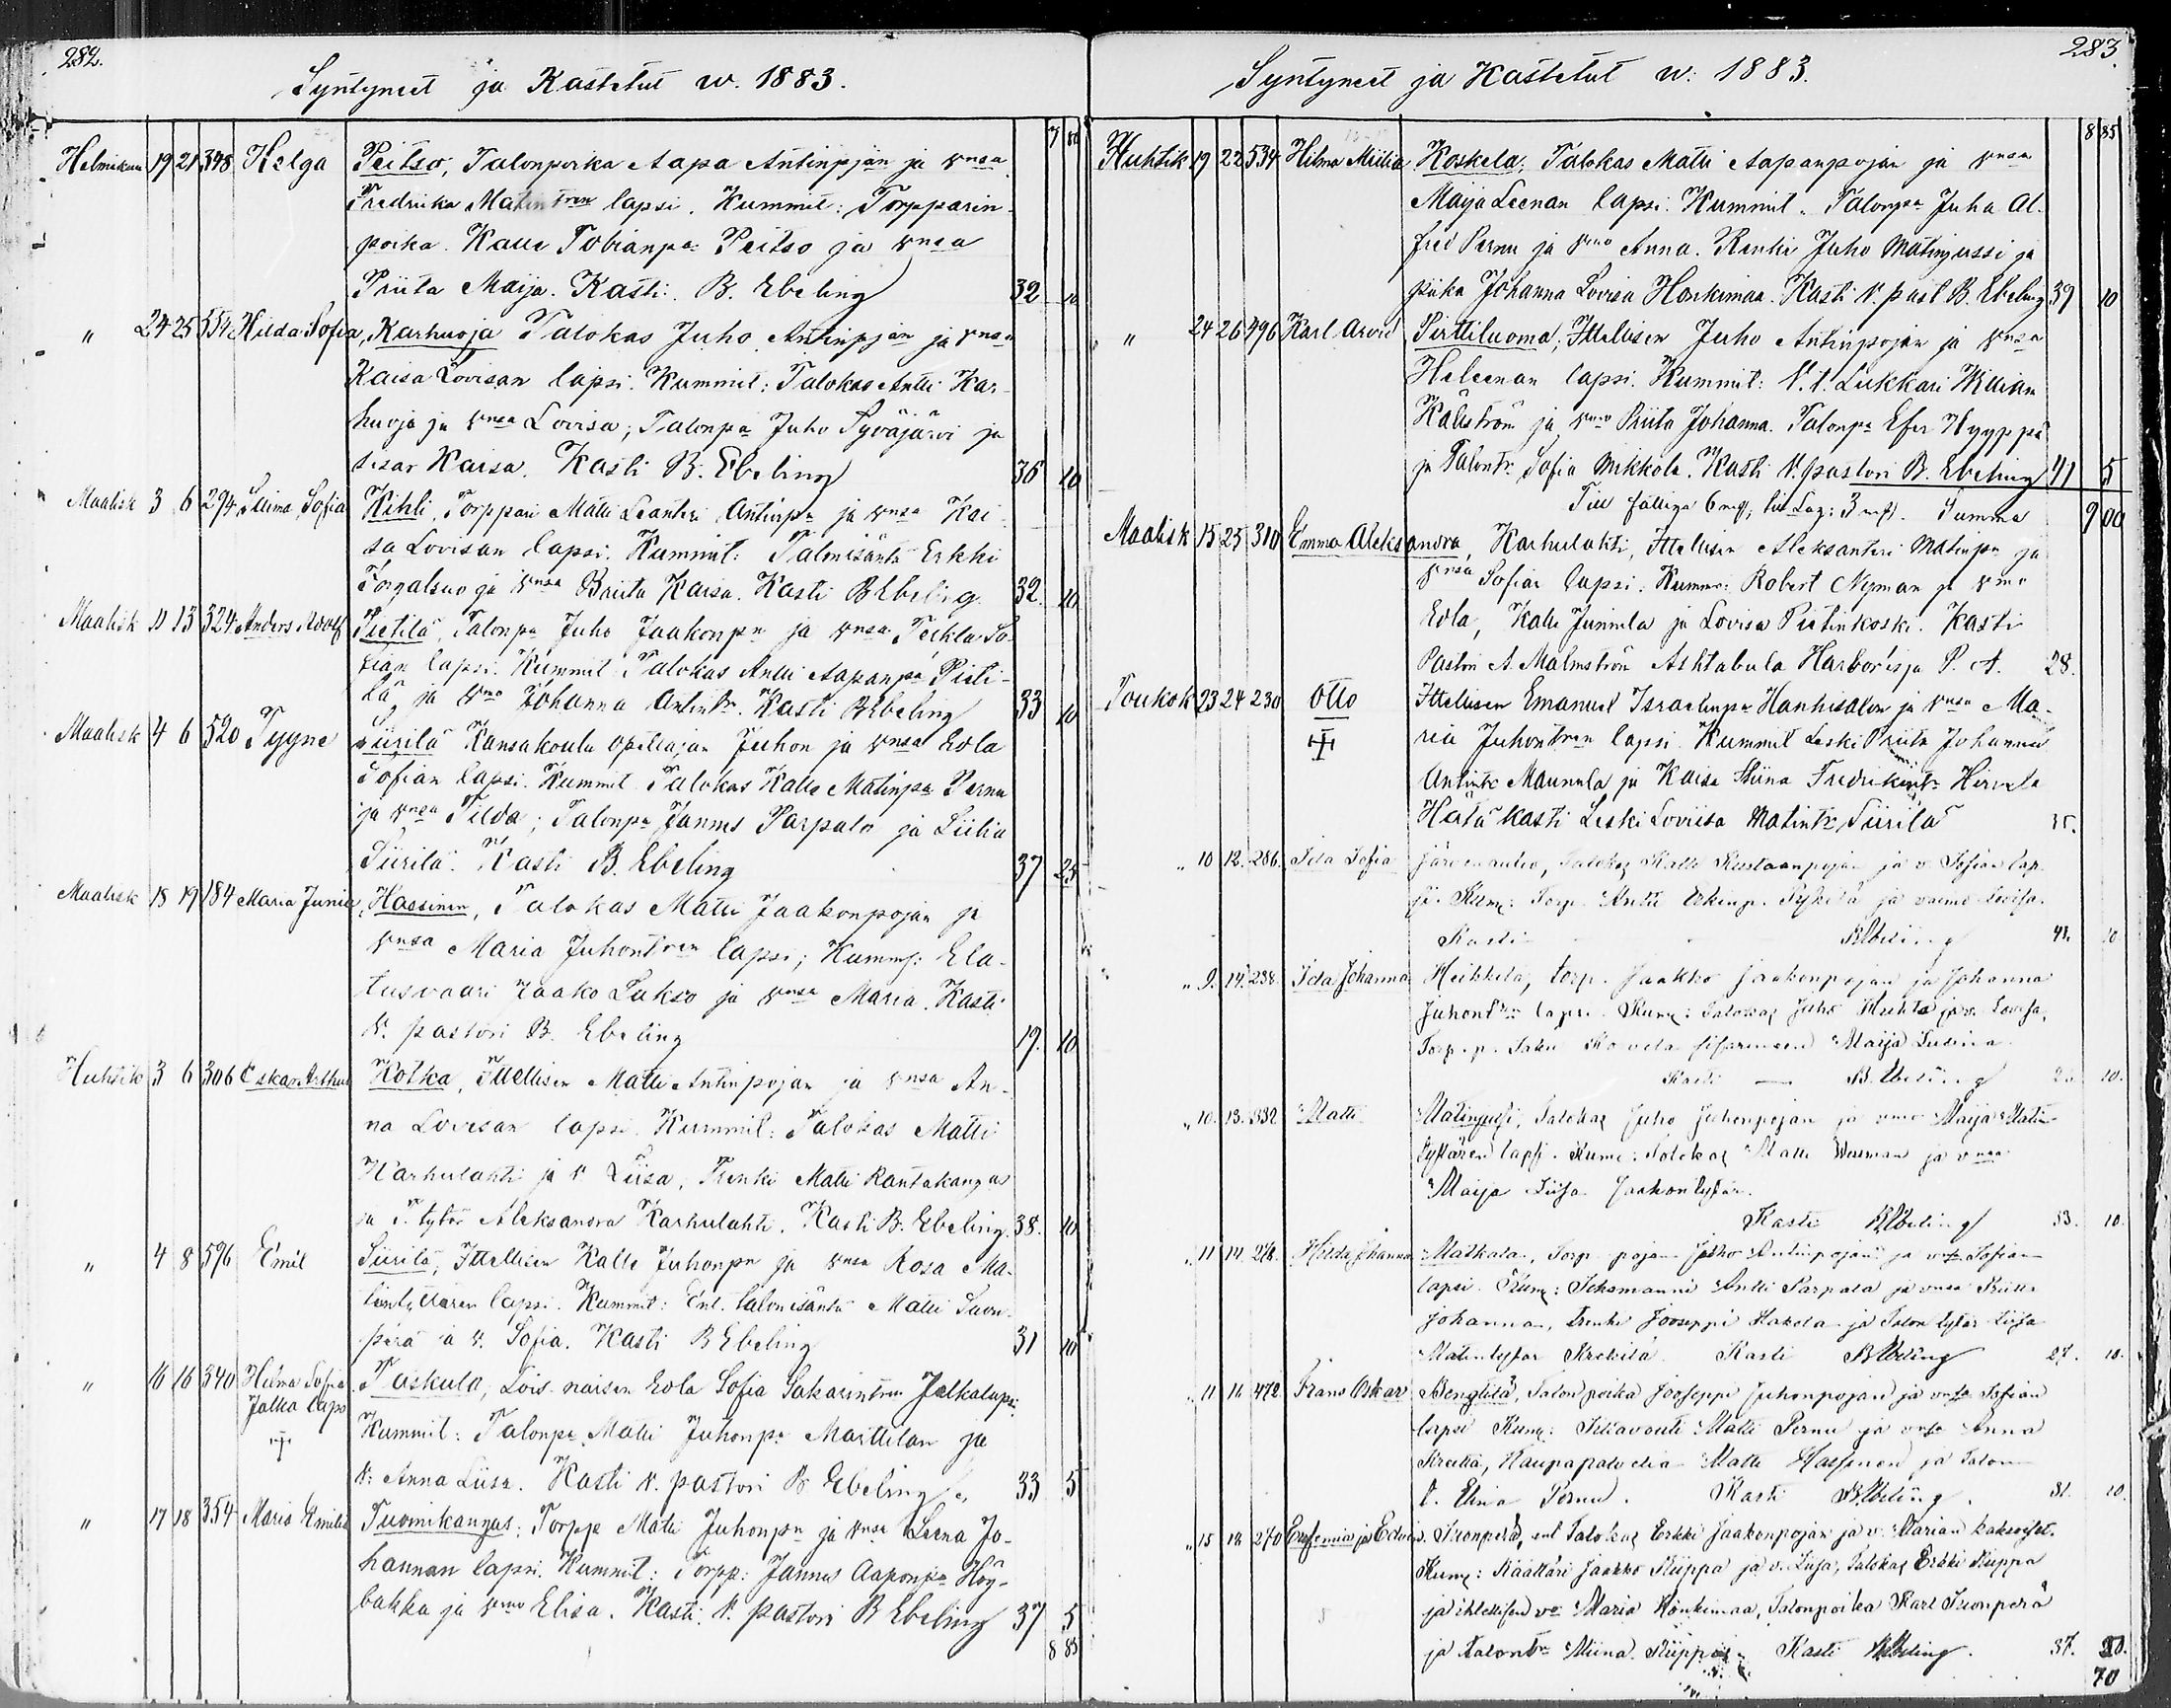 282.
Syntyneet ja Kastetut w. 1883.
7 80
Helmikuu 19 21 348 Helga Peitso, Talonpoika Aapa Antinpjän ja vnsa
Fredriika Matintren lapsi. Kummit: Torpparin
poika Kalle Tobianpa Peitso ja vnsa
Priita Maija. Kasti: B. Ebeling 32 10
" 24 25 554 Hilda Sofia, Karhuoja Talokas Juho Antinpjän ja vnsa
Kaisa Lovisan lapsi. Kummit: Talokas Antti Kar-
huoja ja vnsa Lovisa; Talonpa Juho Syväjärvi ja
sisar Kaisa. Kasti B. Ebeling 36 10
Maalisk 3 6 294 Saima Sofia Kihli, Torppari Matti Leanteri Antinpn ja vnsa Kai-
sa Lovisan lapsi. Kummit: Talonisäntä Erkki
ja vnsa Briita Kaisa. Kasti B Ebeling 32. 10
Maalisk 11 13 324 Anders Adolf Pietilä, Talonpn Juho Jaakonpn ja vnsa Teckla So-
fian lapsi. Kummit Talokas Antti Aapanpa Pieti-
lä, ja vmo Johanna Antintr. Kasti B Ebeling 33 10
Maalisk 4 6 520 Tyyne Siirilä Kansakoulu opettajan Juhon ja vnsa Eola
Sofian lapsi. Kummit Talokas Kalle Matinpa Pernu
ja vnsa Tilda; Talonpa Jannes Parpala ja Liilia
Siirilä. Kasti B. Ebeling 37 25
Maalisk 18 19 184 Maria Junia, Hassinen, Talokas Matti Jaakonpojan ja
vnsa Maria Juhontren lapsi; Kumms: Ela-
tusvaari Jaako Lukso ja vnsa Maria. Kasti
V. pastori B. Ebeling 19. 10
Huhtik 3 6 306 Oskar Arthur Kotka, Ittellisen Matti Antinpojan ja vnsa An-
na Lovisan lapsi. Kummit: Talokas Matti
Karhulahti ja v. Liisa, Renki Matti Rantakangas
ja T. tytär Aleksandra Karhulahti. Kasti B. Ebeling. 38. 10
" 4 8 596 Emil Siirilä, Ittellisen Kalle Juhonpn ja vnsa Rosa Ma-
tintyttären lapsi. Kummit: Ent. talonisäntä Matti Savon-
perä ja v. Sofia. Kasti B Ebeling 31 10
" 16 16 340 Hilma Sofia Taskula, Lois naisen Eola Sofia Sakarintren Jalkalapsi.
Jalka laps
Kummit: Talonpa Matti Juhonpa Marttilan ja
V: Anna Liisa. Kasti V. pastori B Ebeling 33 5
" 17 18 354 Maria Emilia Tuomikangas: Torpp. Matti Juhonpn ja vnsa Leena Jo-
hannan lapsi. Kummit: Torpp: Jannes Aaponpa Hög-
bakka ja vmo Elisa. Kasti: V. pastori B Ebeling 37 5
8 85
283.
Syntyneet ja Kastetut w: 1883.
8 85
Huhtik 19 22 534 Hilma Miilia Koskela; Talokas Matti Aapanpojan ja vnsa
Maija Leenan lapsi. Kummit. Talonpa Juha Al-
fred Pernu ja vmo Anna. Renki Juho Matinjussi ja
piika Johanna Lovisa Honkimaa. Kasti V. past B. Ebeling 39 10
" 24 26 496 Karl Arvid Pirttiluoma; Ittellisen Juho Antinpojan ja vnsa
Heleenan lapsi. Kummit: V. t. Lukkari
Källström ja vmo Priita Johanna. Talonpa Efer Hyyppä
ja Talontr. Sofia Mikkola. Kasti V. pastori B. Ebeling 41 5
Summa 9 00
Maalisk 15 25 310 Emma Aleksandra, Karhulahti, Ittellisen Aleksanteri Matinpn ja
vnsa Sofian lapsi. Kumms: Robert Nyman ja vmo
Eola, Kalle Junnila ja Lovisa Pietinkoski. Kasti
Pastori A. Malmström Ashtabula Harborissa P. A. 28.
Toukok 23 24 230 Otto Ittellisen Emanuel Israelinpn Hanhisalon ja vnsa Ma-
ria Juhontren lapsi. Kummit Leski Priita Johanna
Antintr Maunula ja Kaisa Stiina Fredrikintr Hirvela
Hätä kasti Leski Loviisa Matintr Siirilä 35.
" 10 12. 286. Ida Sofia Järvenautio, Talokas Kalle Kustaanpojan ja v. Sofian lap-
si. Kumq: Torp. Antti Erkinp. Pyhälä ja vaimo Lovisa.
Kasti B Ebeling 41. 10
" 9. 14. 238. Ida Johanna Heikkilä, torp. Jaakko Jaakonpojan ja Johanna
Juhontr. lapsi. Kumq: Talokas Juho Huhta ja v. Lovisa,
Torp. p. Maija
Kasti — B. Ebeling 10.
" 10. 13. 332. Matti Matinjussi, Talokas Juho Juhonpojan ja vmo Maija Matin-
tyttären lapsi. Kumq: Talokas Matti ja vnsa
Maija Liisa Jaakontytär.
Kasti B Ebeling 33. 10.
" 11 14. Hilda Johanna Matkala, Torp. pojan Antinpojan ja vnsa Sofian
lapsi. Kumq: Antti Parpala ja vnsa Priitta
Johanna, trenki Jooseppi Hakola ja Talon tytär Liisa
Matintytär Kasti B Ebeling 27. 10.
" 11 16 472 Frans Oskar Bengtilä, Talon poika Jooseppi Juhonpojan ja vnsa Sofian
lapsi Kumq: Matti Pernu ja vnsa Anna
Kreeta, Kauppapalvelia Matti Hassinen ja Talon
t. Elina Pernu. Kasti B Ebeling. 31. 10.
" 15 18 270 Eufemia ja Edvin. Luonperä, ent Talokas Erkki Jaakonpojan ja v. Marian kaksoiset.
Kumq: Räättäri Jaakko Riippa ja v. Liisa, Talokas Erkki Riippa
ja ittellisen vo Maria Honkimaa, Talonpoika Karl Luonperä
ja talontr Miina Riippa. Kasti B Ebeling. 37.
70